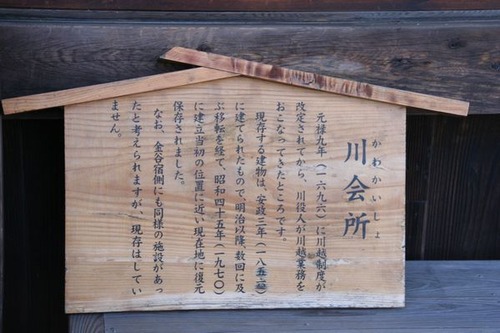 かわかいしょ
川会所
元禄九年（一六九六）に川越制度が
改定されてから、川役人が川越業務を
おこなってきたところです。
現存する建物は、安政三年（一八五六）
に建てられたもので明治以降、数回に及
ぶ移転を経て、昭和四十五年（一九七〇）
に建立当初の位置に近い現在地に復元
保存されました。
なお、金谷宿側にも同様の施設があっ
たと考えられますが、現存はしてい
ません。